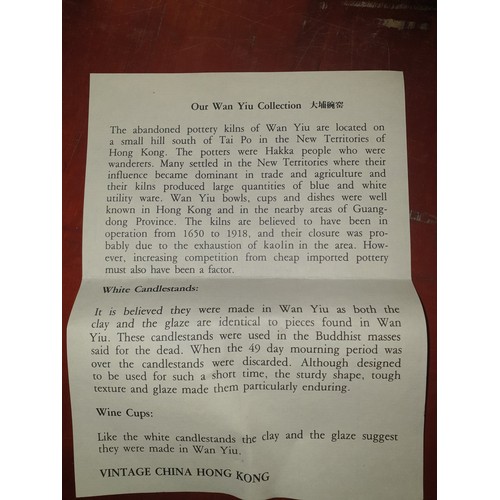 Our Wan Yiu Collection 大埔碗窑
The abandoned pottery kilns of Wan Yiu are located on
a small hill south of Tai Po in the New Territories of
Hong Kong. The potters were Hakka people who were
wanderers. Many settled in the New Territories where their
influence became dominant in trade and agriculture and
their kilns produced large quantities of blue and white
utility ware. Wan Yiu bowls, cups and dishes were well
known in Hong Kong and in the nearby areas of Guang-
dong Province. The kilns are believed to have been in
operation from 1650 to 1918, and their closure was pro-
bably due to the exhaustion of kaolin in the area. How-
ever, increasing competition from cheap imported pottery
must also have been a factor.
White Candlestands:
It is believed they were made in Wan Yiu as both the
clay and the glaze are identical to pieces found in Wan
Yiu. These candlestands were used in the Buddhist masses
said for the dead. When the 49 day mourning period was
over the candlestands were discarded. Although designed
to be used for such a short time, the sturdy shape, tough
texture and glaze made them particularly enduring.
Wine Cups:
Like the white candlestands the clay and the glaze suggest
they were made in Wan Yiu.
VINTAGE CHINA HONG KONG